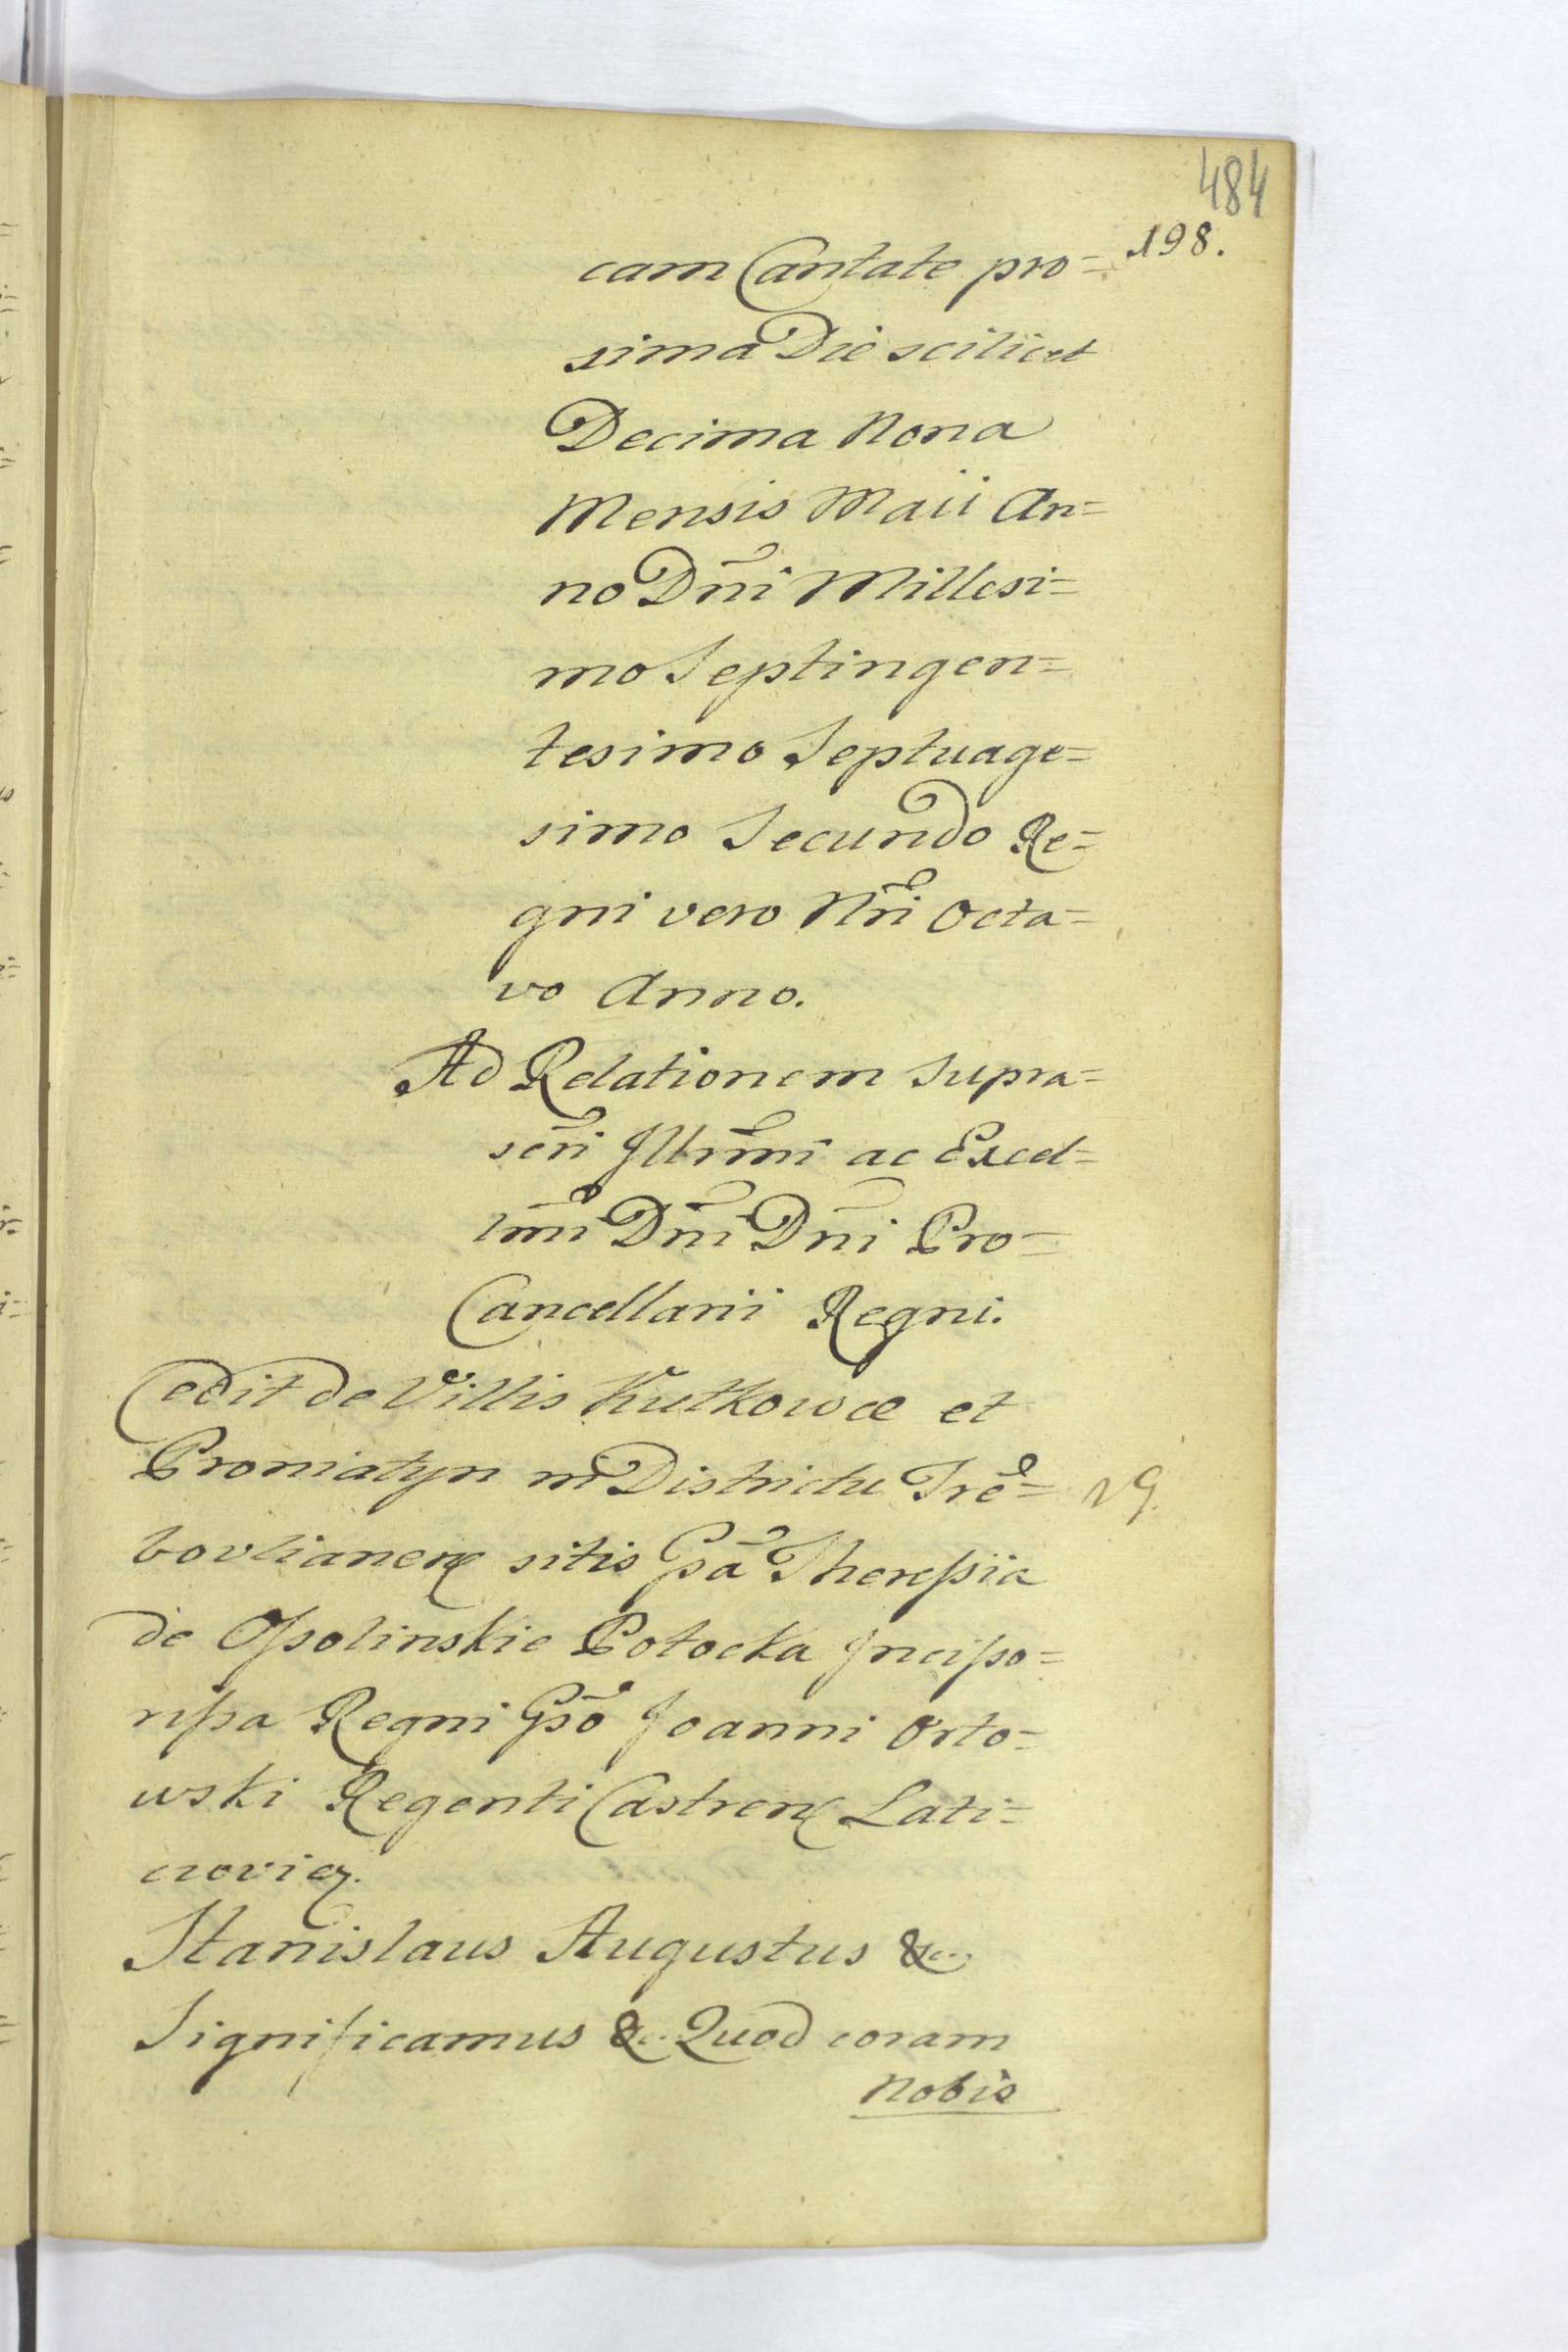 484
198.
cam Cantate pro=
xima Die scilicet
Decima Nona
Mensis Maii An=
no Dñi Millesi=
mo Septingen=
tesimo Septuage=
simo Secundo Re=
gni vero Nri Octa=
vo Anno.
Ad Relationem Supra=
scri Illrmi ac Excel=
lmi Dni Dni Pro=
Cancellarii Regni.
Cedit de Villis Kutkowce et
Proniatyn in Districtu Tre=
bovlianen sitis Gsa Theressia
de Ossolinskie Potocka Incisso=
rissa Regni Gso Joanni Orło=
wski Regenti Castren Lati=
czovien.
Stanislaus Augustus &c.
Significamus &c. Quod coram
Nobis